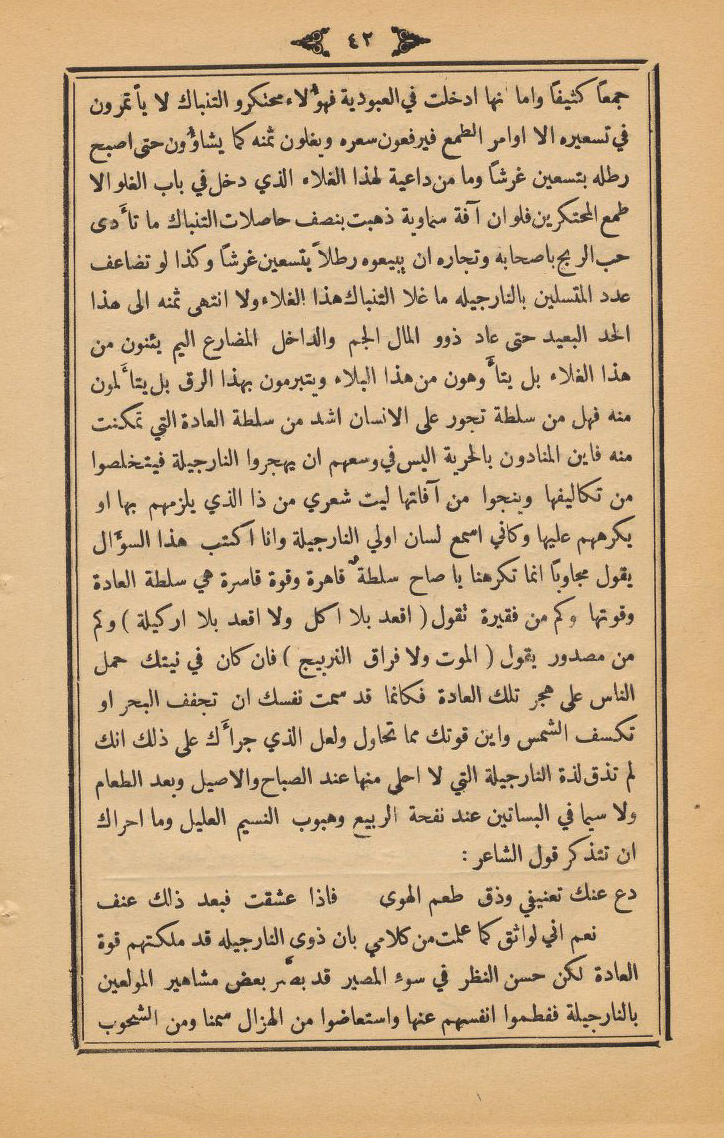 ٤٢
جمعاً كثيفاً واما انها ادخلت في العبودية فهؤلاء محتكرو التنباك لا يأتمرون
في تسعيره الا اوامر الطمع فيرفعون سعره ويغلون ثمنه كما يشاؤون حتى اصبح
رطله بتسعين غرشاً وما من داعية لهذا الغلاء الذي دخل في باب الغلو الا
طمع المحتكرين فلو ان آفة سماوية ذهبت بنصف حاصلات التنباك ما تأدى
حب الربح باصحابه وتجاره ان يبيعوه رطلاً بتسعين غرشاً وكذا لو تضاعف
عدد المتسلين بالنارجيله ما غلا التنباك هذا الغلاء ولا انتهى ثمنه الى هذا
الحد البعيد حتى عاد ذوو المال الجم والداخل المضارع اليم يئنون من
هذا الغلاء بل يتأوهون من هذا البلاء ويتبرمون بهذا الرق بل يتألمون
منه فهل من سلطة تجور على الانسان اشد من سلطة العادة التي تمكنت
منه فاين المنادون بالحرية اليس في وسعهم ان يهجروا النارجيلة فيتخلصوا
من تكاليفها وينجوا من آفاتها ليت شعري من ذا الذي يلزمهم بها او
يكرههم عليها وكاني اسمع لسان اولي النارجيلة وانا اكتب هذا السؤال
يقول مجاوباً انما تكرهنا يا صاح سلطةٌ قاهرة وقوة قاسرة هي سلطة العادة
وقوتها وكم من فقيرة تقول ( اقعد بلا اكل ولا اقعد بلا اركيلة ) وكم
من مصدور يقول ( الموت ولا فراق النربيج ) فان كان في نيتك حمل
الناس على هجر تلك العادة فكانما قد سمت نفسك ان تجفف البحر او
تكسف الشمس واين قوتك مما تحاول ولعل الذي جرأك على ذلك انك
لم تذق لذة النارجيلة التي لا احلى منها عند الصباح والاصيل وبعد الطعام
ولا سيما في البساتين عند نفحة الربيع وهبوب النسيم العليل وما احراك
ان تتذكر قول الشاعر :
دع عنك تعنيفي وذق طعم الهوى فاذا عشقت فبعد ذلك عنف
نعم اني لواثق كما علمت من كلامي بان ذوي النارجيله قد ملكتهم قوة
العادة لكن حسن النظر في سوء المصير قد بصّر بعض مشاهير المولعين
بالنارجيلة ففطموا انفسهم عنها واستعاضوا من الهزال سمنا ومن الشحوب